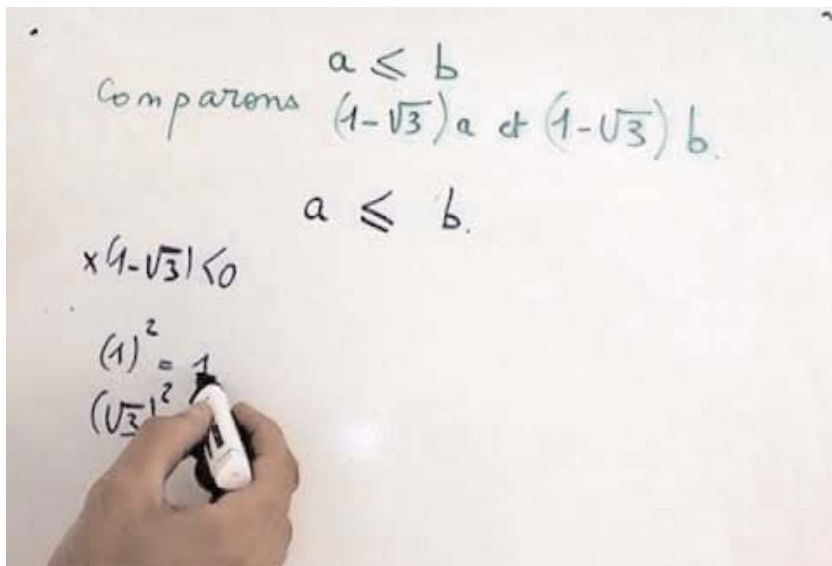 a ⩽ b
Comparons (1-√3)a et (1-√3)b.
a ⩽ b.
×(1-√3)<0
(1)² = 1
(√3)²